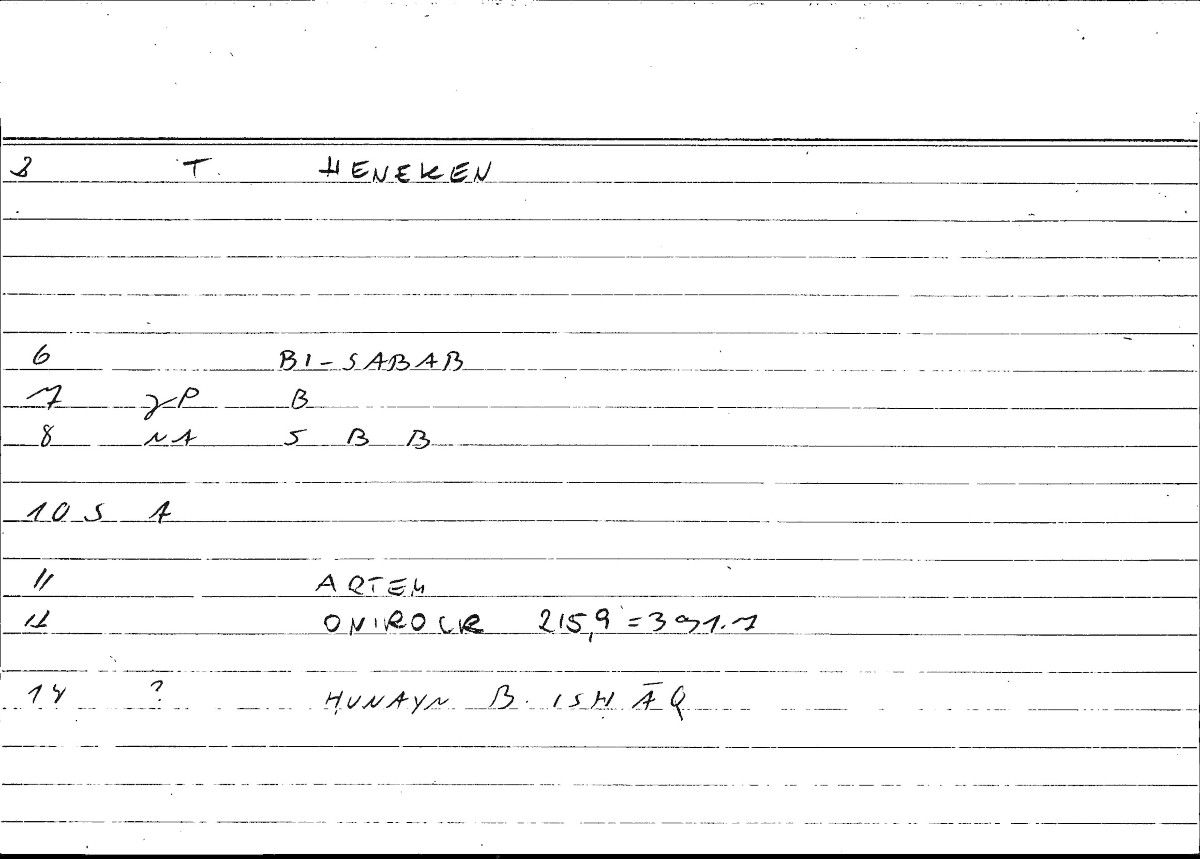 3 T. HENEKEN
6 BI-SABAB
7 γP B
8 NA S B B
10 S A
11 ARTEM
12 ONIROCR 215,9 = 391.1
14 ? ḤUNAYN B. ISḤĀQ